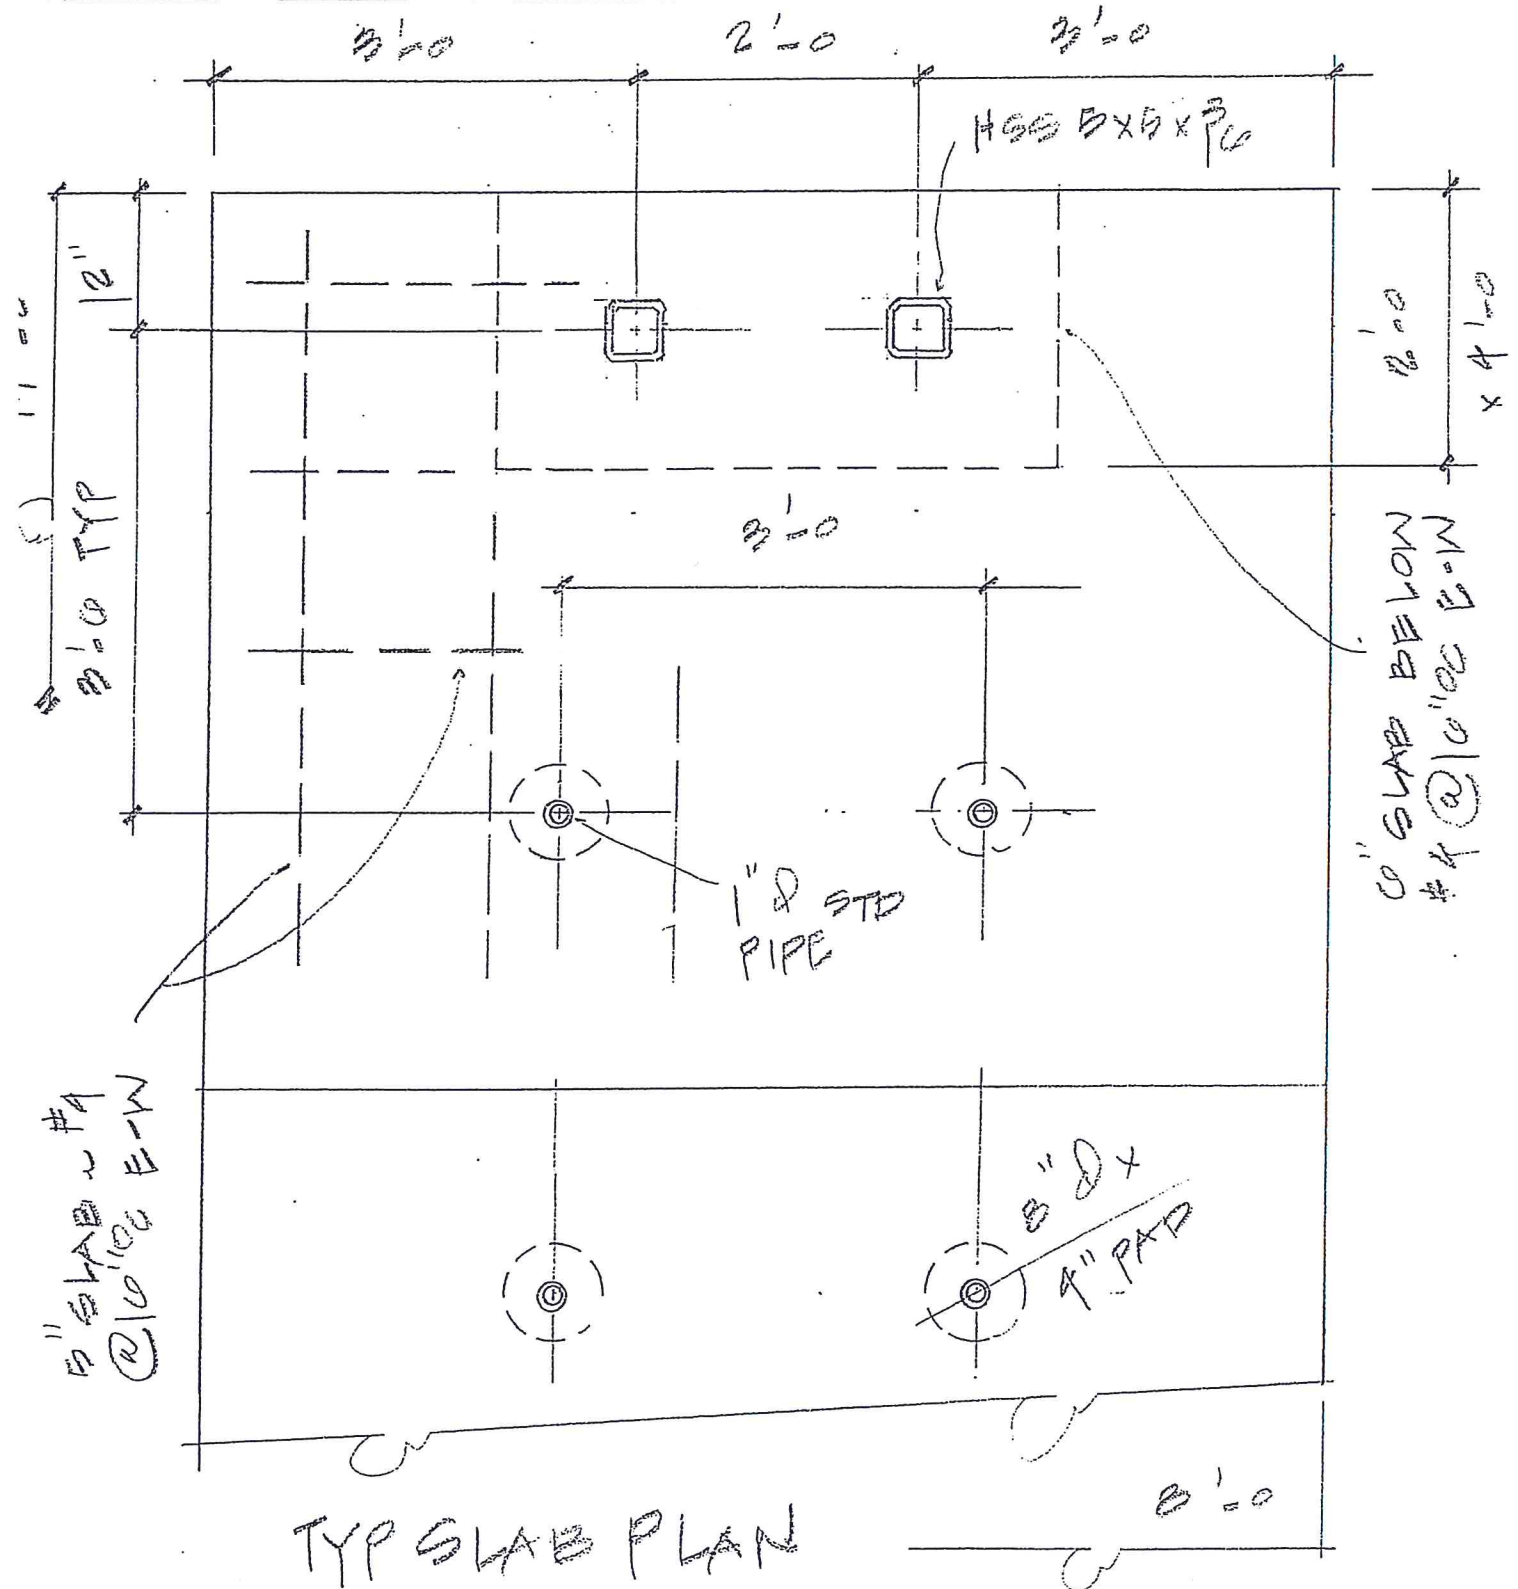 3'-0
2'-0
3'-0
HSS 5x5x3/16
12"
3'-0 TYP
2'-0
x 4'-0
3'-0
6" SLAB BELOW
#4 @ 16"OC E-W
1"Ø STD
PIPE
5" SLAB w #4
@ 16"OC E-W
8"Ø x
4" PAD
8'-0
TYP SLAB PLAN